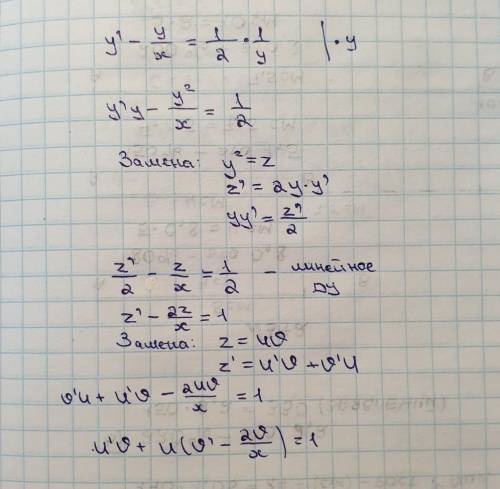 y' - y/x = 1/2 · 1/y | · y
y'y - y²/x = 1/2
Замена: y² = z
z' = 2y · y'
yy' = z'/2
z'/2 - z/x = 1/2 - линейное ДУ
z' - 2z/x = 1
Замена: z = uϑ
z' = u'ϑ + ϑ'u
ϑ'u + u'ϑ - 2uϑ/x = 1
u'ϑ + u(ϑ' - 2ϑ/x) = 1